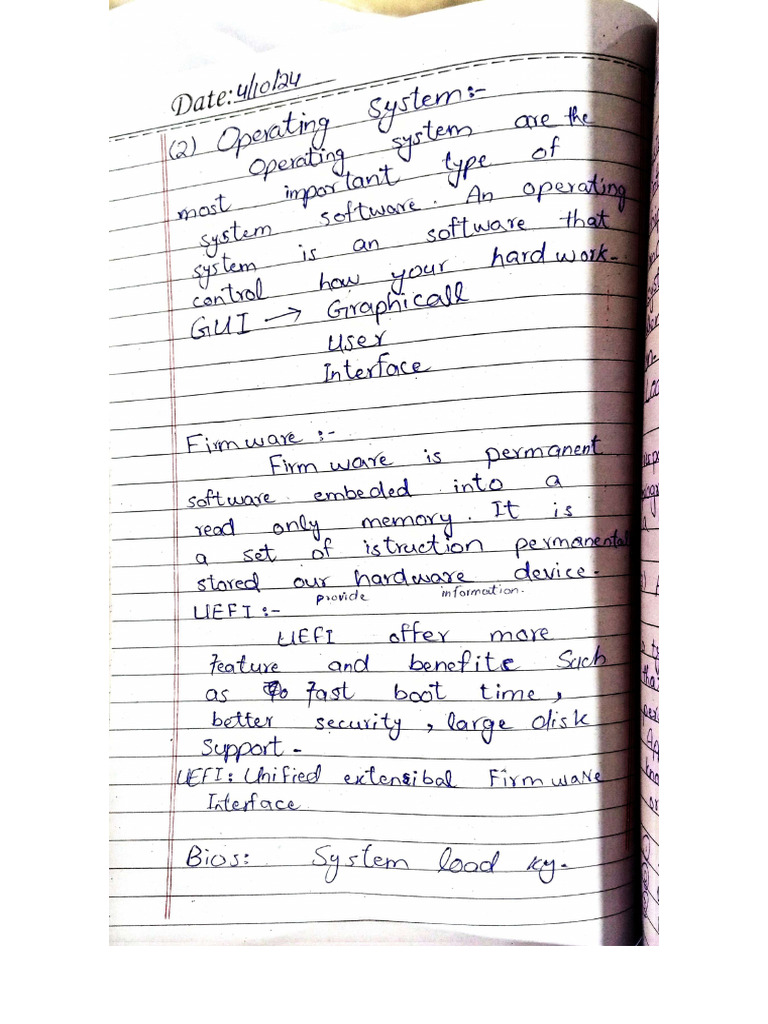 Date: 4/10/24
(2) Operating System:-
Operating system are the
most important type of
system software. An operating
system is an software that
control how your hardwork.
GUI → Graphicall
User
Interface
Firmware :-
Firmware is permanent
software embeded into a
read only memory. It is
a set of istruction permanental
stored our hardware device.
provide information.
UEFI :-
UEFI offer more
feature and benefits Such
as fast boot time,
better security, large disk
Support -
UEFI: Unified extensibal Firmware
Interface
Bios: System load ky.